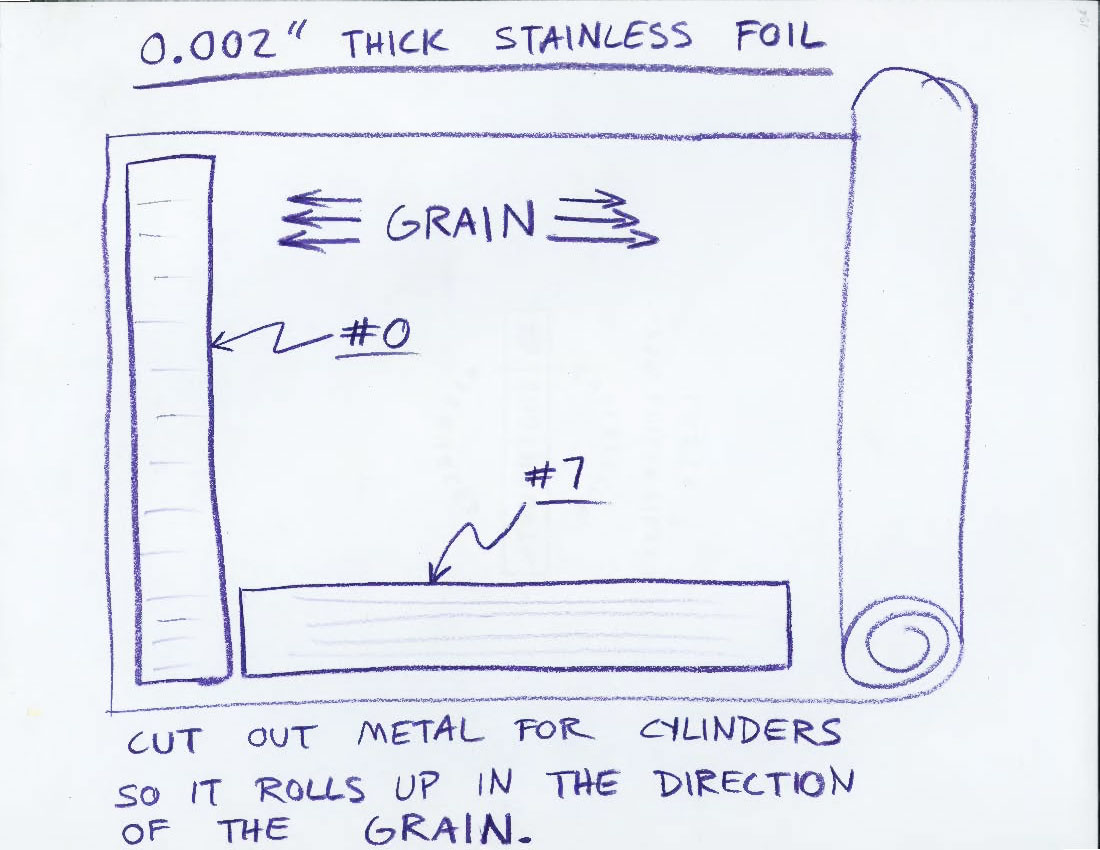 0.002" THICK STAINLESS FOIL
GRAIN
#0
#7
CUT OUT METAL FOR CYLINDERS
SO IT ROLLS UP IN THE DIRECTION
OF THE GRAIN.